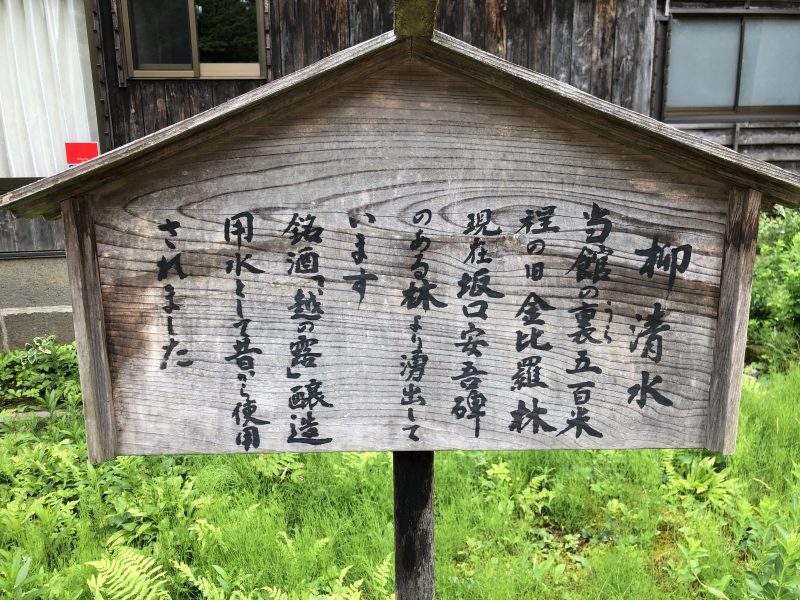 柳清水
当館の裏五百米
うら
程の旧金比羅林
現在坂口安吾碑
のある林より湧出して
います
銘酒「越の露」醸造
用水として昔から使用
されました